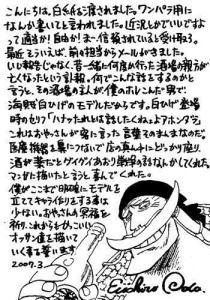 こんにちは。白紙を渡されました。ワンパラ用に
なんか書いてと言われました。近況とかでいいですよ
って適当か!自由か!まー信頼されていると受け取ろう。
最近そういえば、前の担当からメールがきました。
いい報告じゃなく、昔一緒に何度か行った酒場の親方が
亡くなったという訃報。何でこんな話をするのかと
言うと、その酒場の主人が僕のホレこんだ男で
海賊「白ひげ」のモデルだからです。白ひげ登場
時のセリフ「ハナッたれとは話したくねェよアホンダラ」
これはおやっさんが客に言った言葉そのまんまなのだ。
医療機器を鼻につないで店の真ん中にどっかり座り、
酒が薬だとグイグイあおり戦争の話なんかしてくれた。
マンガ描いたと言うと喜んでくれた。
僕がここまで明確にモデルを
立ててキャラ作りをする事は
少ない。おやっさんの冥福を
祈り、これからもかっこいい
オッサン達を描いて
いく事を誓います。
2007.3
Eiichiro Oda.